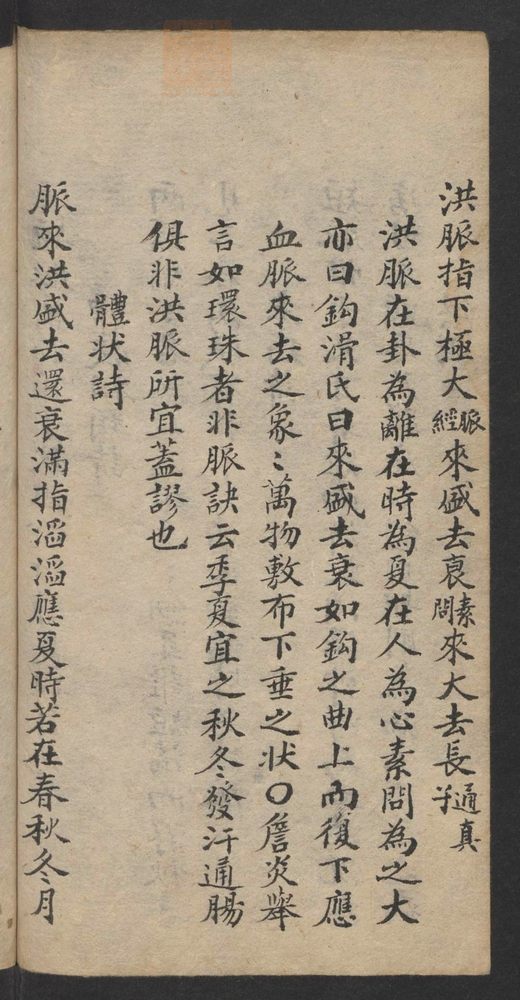 洪脈指下極大脈經來盛去衰素問來大去長通真子
洪脈在卦為離在時為夏在人為心素問為之大
亦曰鈎滑氏曰來盛去衰如鈎之曲上而復下應
血脈來去之象〻萬物敷布下垂之狀〇詹炎舉
言如環珠者非脈訣云季夏宜之秋冬發汗通腸
俱非洪脈所宜蓋謬也
體状詩
脈來洪盛去還衰滿指滔滔應夏時若在春秋冬月